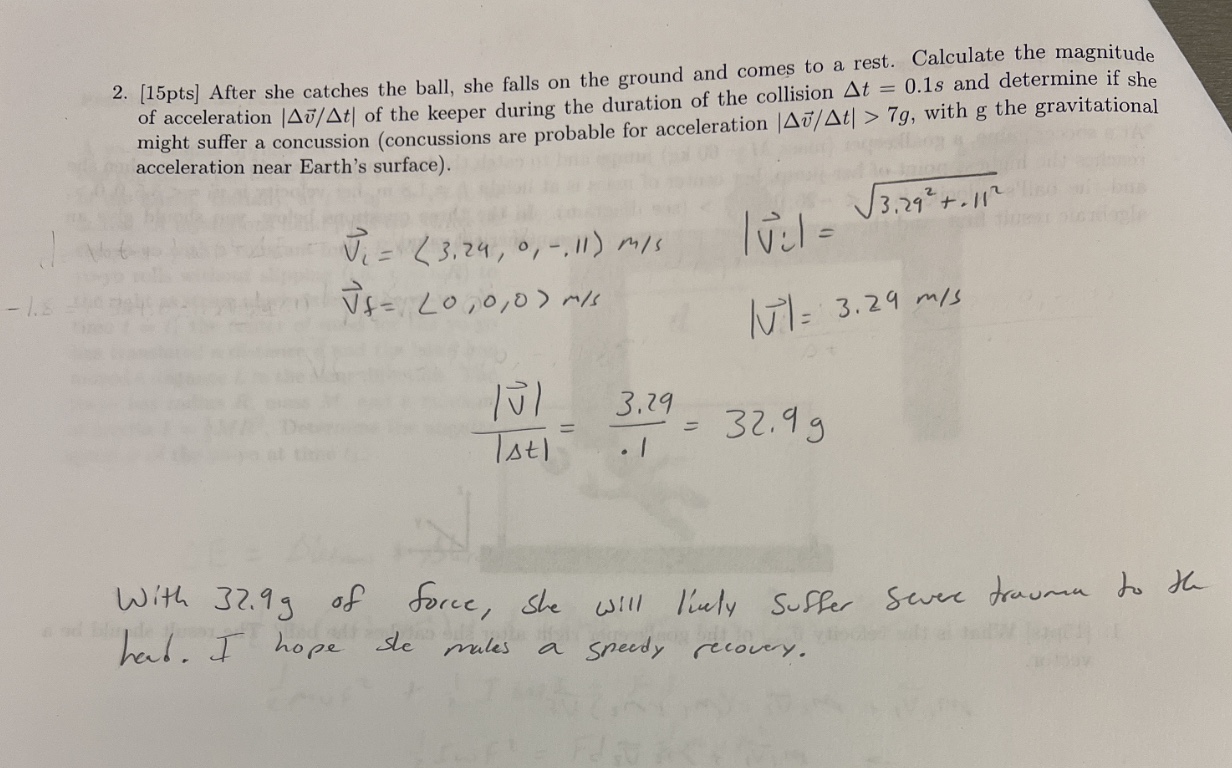 2. [15pts] After she catches the ball, she falls on the ground and comes to a rest. Calculate the magnitude
of acceleration |Δv⃗/Δt| of the keeper during the duration of the collision Δt = 0.1s and determine if she
might suffer a concussion (concussions are probable for acceleration |Δv⃗/Δt| > 7g, with g the gravitational
acceleration near Earth's surface).
v⃗i = ⟨3.29, 0, -.11⟩ m/s |v⃗i| = √(3.29² + .11²)
v⃗f = ⟨0, 0, 0⟩ m/s |v⃗| = 3.29 m/s
|v⃗| / |Δt| = 3.29 / .1 = 32.9 g
With 32.9g of force, she will likely suffer severe trauma to the
head. I hope she makes a speedy recovery.